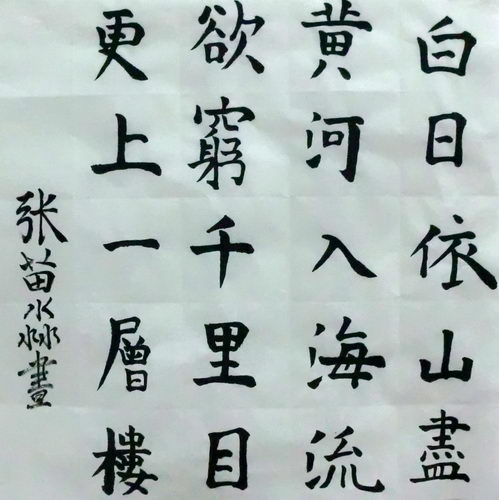 白日依山盡
黃河入海流
欲窮千里目
更上一層樓
张苗淼書